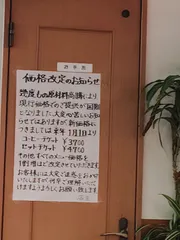 価格改定のお知らせ
現行価格でのご提供が困難
となりました大変心苦しいお知
らせではありますが新価格に
つきましては来年1月1日より
コーヒーチケット ¥3700
セットチケット ¥4700
その他すべてのメニュー価格を
1割増ほど改定させていただきます
お客様には大変ご迷惑をおかけ
いたしますが何卒ご理解いただ
けますようよろしくお願い致します
店主